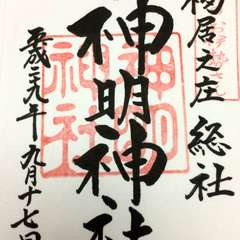 居之庄 総社
神明神社
神明
神社
平成廿九年九月十七日